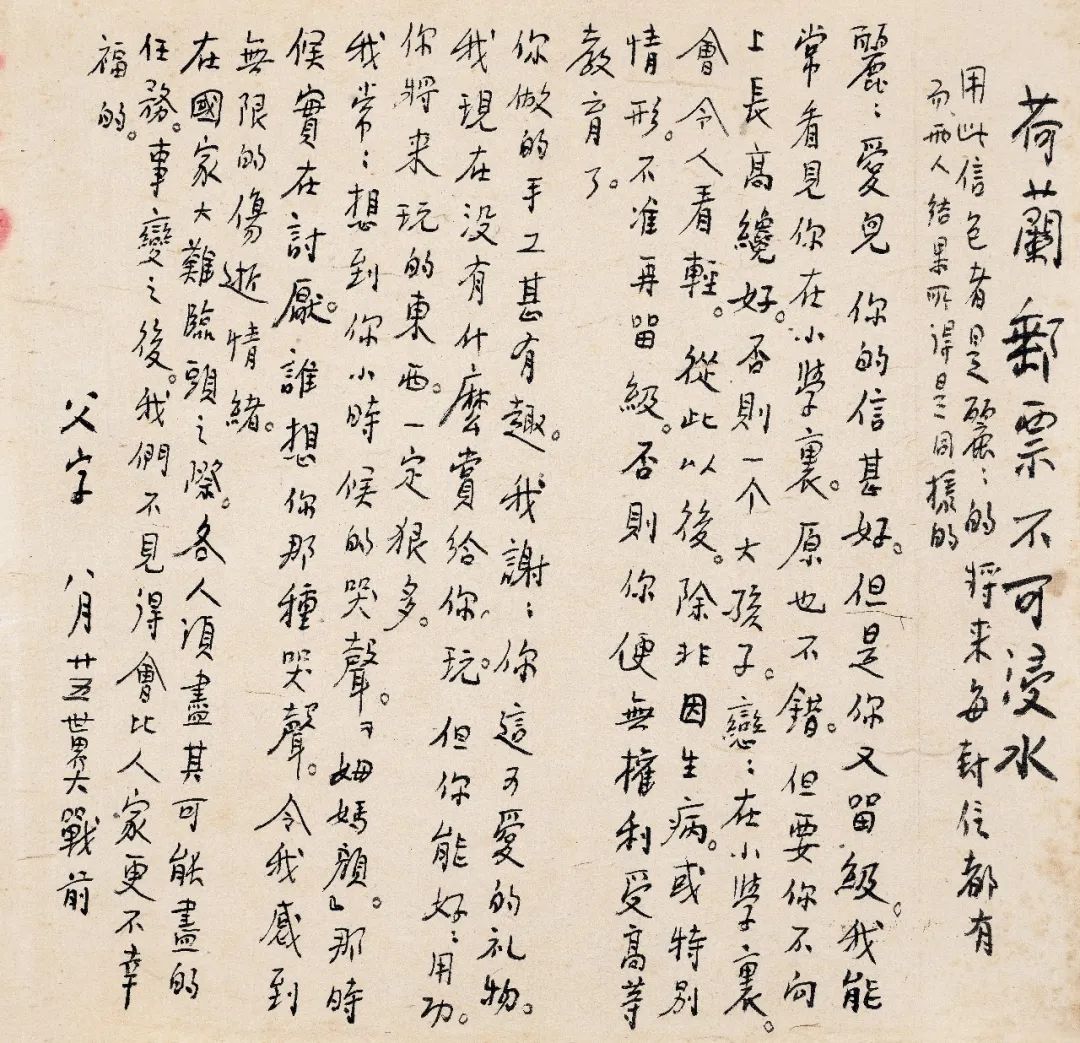 荷蘭郵票不可浸水
用此信色者是麗〻的 將来每封信都有
而兩人結果所得是同樣的
麗〻愛兒 你的信甚好。但是你又留級。我能
常看見你在小學裏。原也不錯。但要你不向
上長高纔好。否則一个大孩子。戀〻在小學裏。
會令人看輕。從此以後。除非因生病。或特别
情形。不准再留級。否則你便無權利受高等
教育了。
你做的手工甚有趣。我謝〻你這可愛的礼物。
我現在没有什麽賞给你玩。但你能好〻用功。
你將来玩的東西。一定狠多。
我常〻想到你小時候的哭聲。『姆媽顏。』那時
候實在討厭。誰想你那種哭聲。令我感到
無限的傷逝情緒。
在國家大難臨頭之際。各人須盡其可能盡的
任務。事變之後。我們不見得會比人家更不幸
福的。
父字 八月廿五世界大戰前